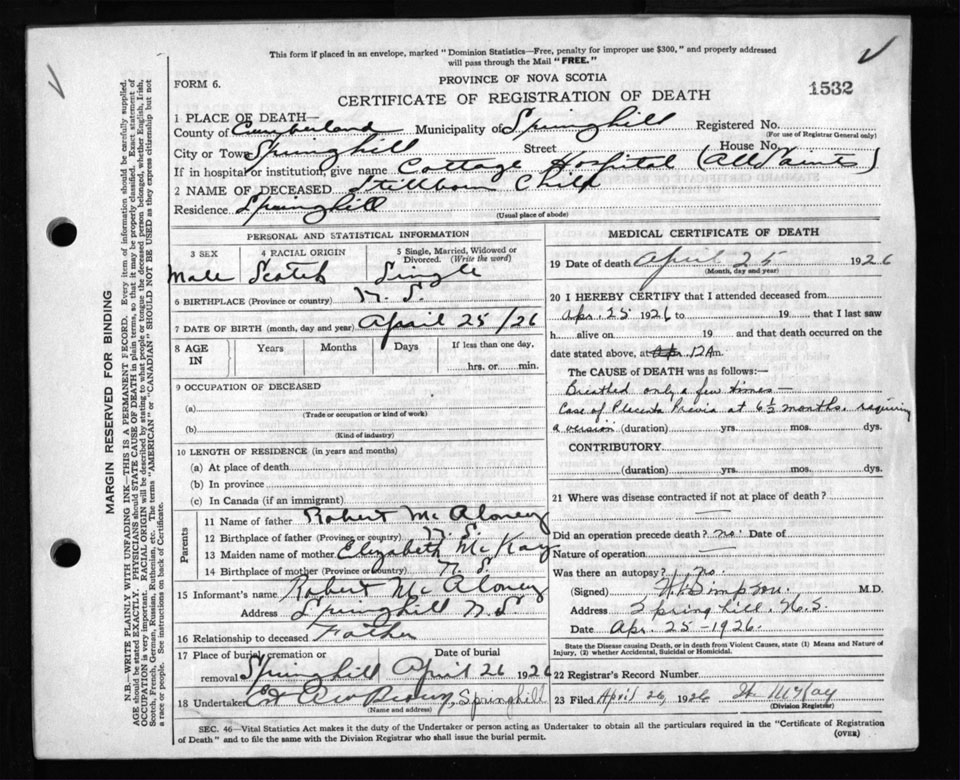 This form if placed in an envelope, marked "Dominion Statistics—Free, penalty for improper use $300," and properly addressed
will pass through the Mail "FREE."
PROVINCE OF NOVA SCOTIA
FORM 6.
1532
CERTIFICATE OF REGISTRATION OF DEATH
1 PLACE OF DEATH—
County of Cumberland Municipality of Springhill Registered No.
(For use of Registrar General only)
City or Town Springhill Street House No.
If in hospital or institution, give name Cottage Hospital (All Saints)
2 NAME OF DECEASED Stillborn Child
Residence Springhill
(Usual place of abode)
PERSONAL AND STATISTICAL INFORMATION
3 SEX 4 RACIAL ORIGIN 5 Single, Married, Widowed or
Divorced. (Write the word)
Male Scotch Single
6 BIRTHPLACE (Province or country) N. S.
7 DATE OF BIRTH (month, day and year) April 25/26
8 AGE IN Years Months Days If less than one day,
hrs. or min.
9 OCCUPATION OF DECEASED
(a)
(Trade or occupation or kind of work)
(b)
(Kind of industry)
10 LENGTH OF RESIDENCE (in years and months)
(a) At place of death
(b) In province
(c) In Canada (if an immigrant)
Parents
11 Name of father Robert McAloney
12 Birthplace of father (Province or country) N. S.
13 Maiden name of mother Elizabeth McKay
14 Birthplace of mother (Province or country) N. S.
15 Informant's name Robert McAloney
Address Springhill N.S.
16 Relationship to deceased Father
17 Place of burial, cremation or Date of burial
removal Springhill April 26 1926
18 Undertaker Springhill
(Name and address)
MEDICAL CERTIFICATE OF DEATH
19 Date of death April 25 1926
(Month, day and year)
20 I HEREBY CERTIFY that I attended deceased from
Apr. 25 1926 to 19 that I last saw
h alive on 19 and that death occurred on
date stated above, at 12 Am.
The CAUSE of DEATH was as follows:—
Breathed only a few times—
Case of Placenta Previa at 6½ months, requiring
a version (duration) yrs. mos. dys.
CONTRIBUTORY.
(duration) yrs. mos. dys.
21 Where was disease contracted if not at place of death?
—
Did an operation precede death? no. Date of
Nature of operation —
Was there an autopsy? No.
(Signed) Simpson. M.D.
Address Springhill. N.S.
Date Apr. 25-1926.
State the Disease causing Death, or in death from Violent Causes, state (1) Means and Nature of
Injury, (2) whether Accidental, Suicidal or Homicidal.
22 Registrar's Record Number
23 Filed April 26, 1926 McKay
(Division Registrar)
SEC. 46—Vital Statistics Act makes it the duty of the Undertaker or person acting as Undertaker to obtain all the particulars required in the "Certificate of Registration
of Death" and to file the same with the Division Registrar who shall issue the burial permit.
(OVER)
MARGIN RESERVED FOR BINDING
N.B.—WRITE PLAINLY WITH UNFADING INK—THIS IS A PERMANENT RECORD. Every item of information should be carefully supplied.
AGE should be stated EXACTLY. PHYSICIANS should STATE CAUSE OF DEATH in plain terms, so that it may be properly classified. Exact statement of
OCCUPATION is very important. RACIAL ORIGIN will be described by stating to what people or tongue the deceased person belonged, whether English, Irish,
Scotch, French, German, Russian, Ruthenian, etc. The terms "AMERICAN" or "CANADIAN" SHOULD NOT BE USED as they express citizenship but not
a race or people. See instructions on back of Certificate.